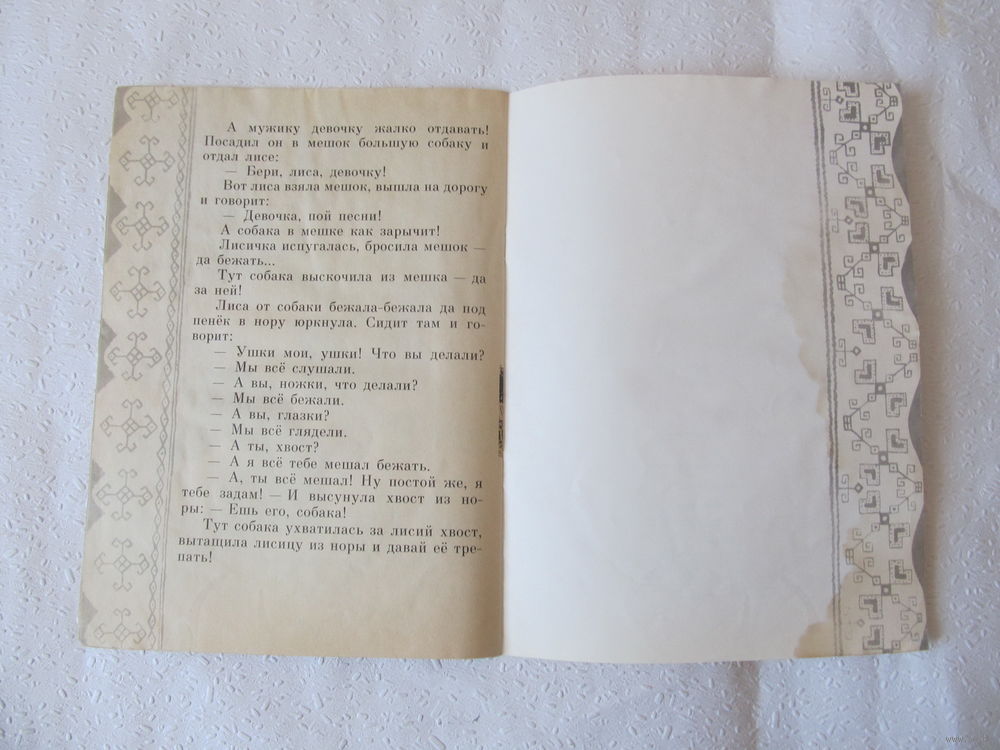 А мужику девочку жалко отдавать!
Посадил он в мешок большую собаку и
отдал лисе:
— Бери, лиса, девочку!
Вот лиса взяла мешок, вышла на дорогу
и говорит:
— Девочка, пой песни!
А собака в мешке как зарычит!
Лисичка испугалась, бросила мешок —
да бежать...
Тут собака выскочила из мешка — да
за ней!
Лиса от собаки бежала-бежала да под
пенёк в нору юркнула. Сидит там и го-
ворит:
— Ушки мои, ушки! Что вы делали?
— Мы всё слушали.
— А вы, ножки, что делали?
— Мы всё бежали.
— А вы, глазки?
— Мы всё глядели.
— А ты, хвост?
— А я всё тебе мешал бежать.
— А, ты всё мешал! Ну постой же, я
тебе задам! — И высунула хвост из но-
ры: — Ешь его, собака!
Тут собака ухватилась за лисий хвост,
вытащила лисицу из норы и давай её тре-
пать!